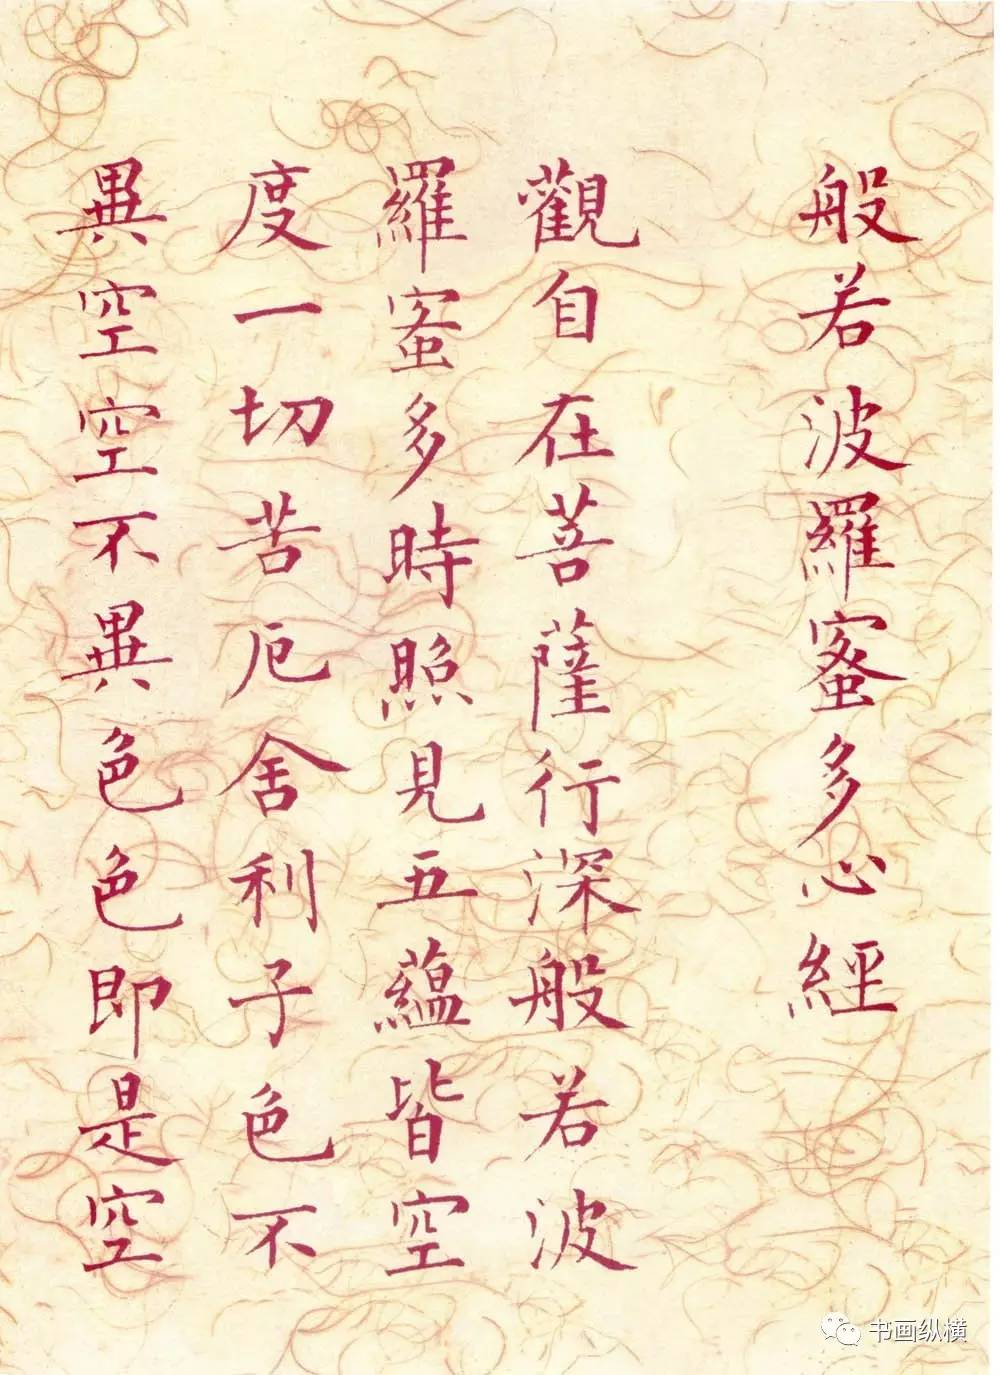 般若波羅蜜多心經
觀自在菩薩行深般若波
羅蜜多時照見五蘊皆空
度一切苦厄舍利子色不
異空空不異色色即是空
书画纵横